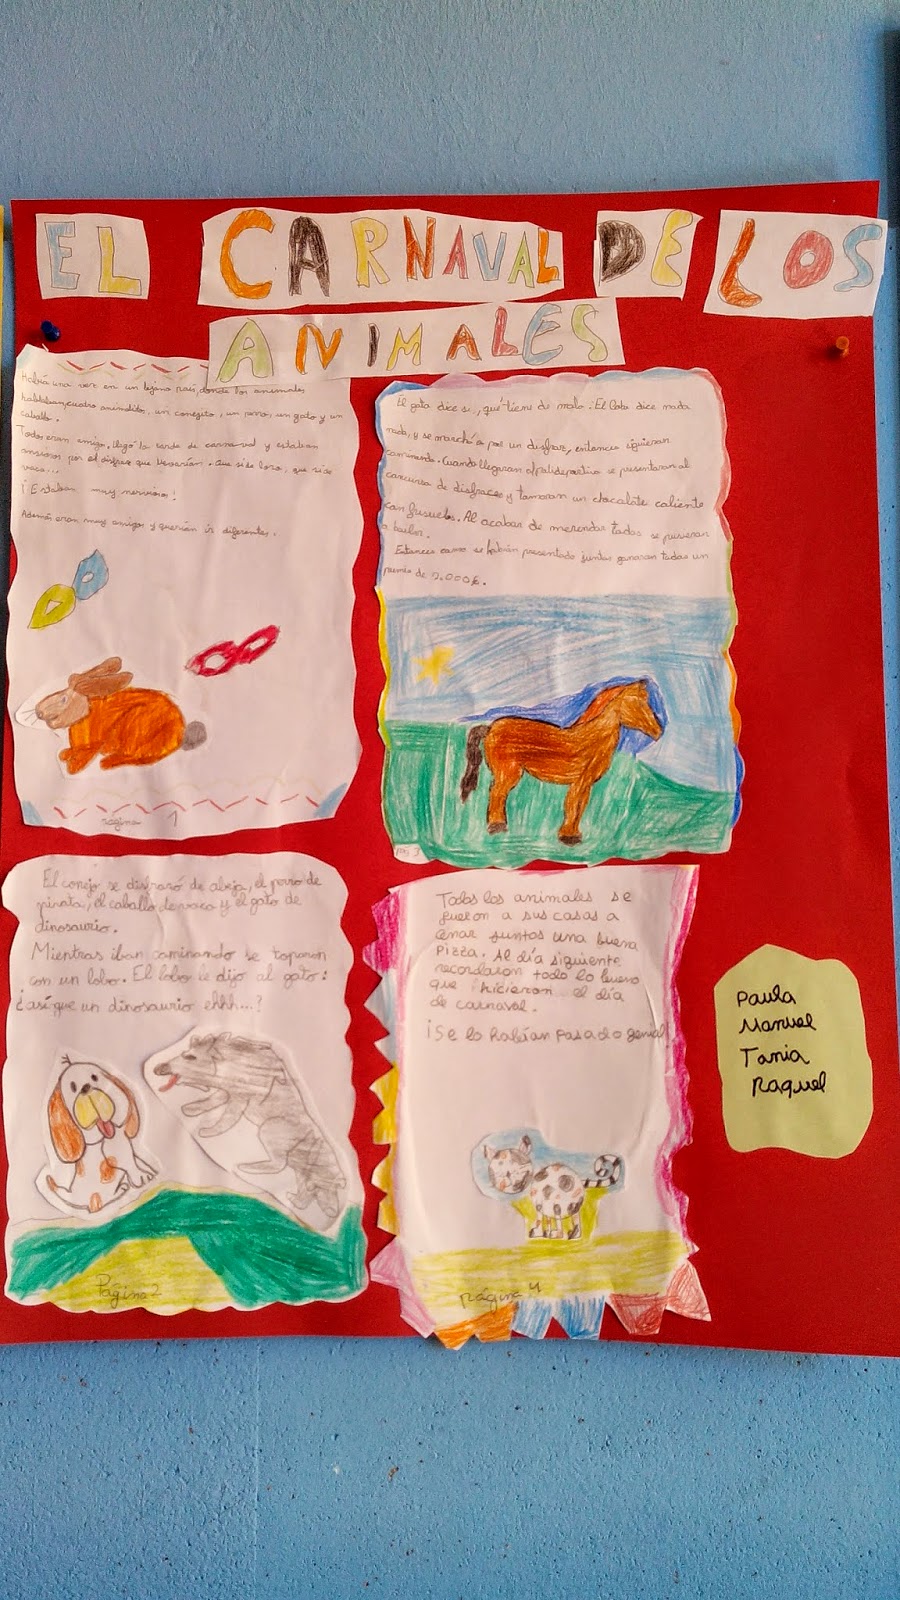 EL CARNAVAL DE LOS
ANIMALES
Había una vez en un lejano país, donde los animales
hablaban, cuatro animalitos, un conejito, un perro, un gato y un
caballo.
Todos eran amigos. llegó la tarde de carnaval y estaban
ansiosos por el disfraz que llevarían. Que si de loro, que si de
vaca...
¡Estaban muy nerviosos!
Además eran muy amigos y querían ir diferentes.
Página 1
El conejo se disfrazó de abeja, el perro de
pirata, el caballo de vaca y el gato de
dinosaurio.
Mientras iban caminando se toparon
con un lobo. El lobo le dijo al gato:
¿así que un dinosaurio ehhh...?
Página 2
El gato dice si, ¿qué tiene de malo? El lobo dice nada
nada, y se marchó a por un disfraz, entonces siguieron
caminando. Cuando llegaron al polideportivo se presentaron al
concurso de disfraces y tomaron un chocolate caliente
con frisuelos. Al acabar de merendar todos se pusieron
a bailar.
Entonces como se habían presentado juntos ganaron todos un
premio de 2.000€.
pág 3
Todos los animales se
fueron a sus casas a
cenar juntos una buena
pizza. Al día siguiente
recordaron todo lo bueno
que hicieron el día
de carnaval.
¡Se lo habían pasado genial
Página 4
Paula
Manuel
Tania
Raquel